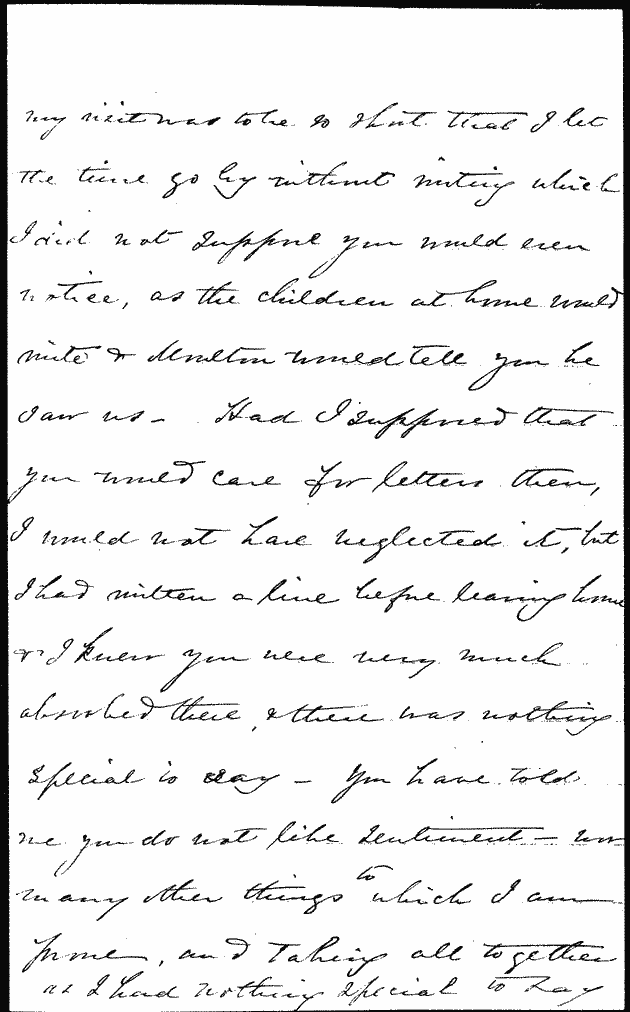 my visit was to be so short that I let
the time go by without writing which
I did not suppose you would even
notice, as the children at home would
write & Moulton would tell you he
saw us - Had I supposed that
you would care for letters then,
I would not have neglected it, but
I had written a line before leaving home
& I knew you were very much
absorbed there, & there was nothing
special to say - You have told
me you do not like sentiment - nor
many other things to which I am
prone, and taking all together
as I had nothing special to say